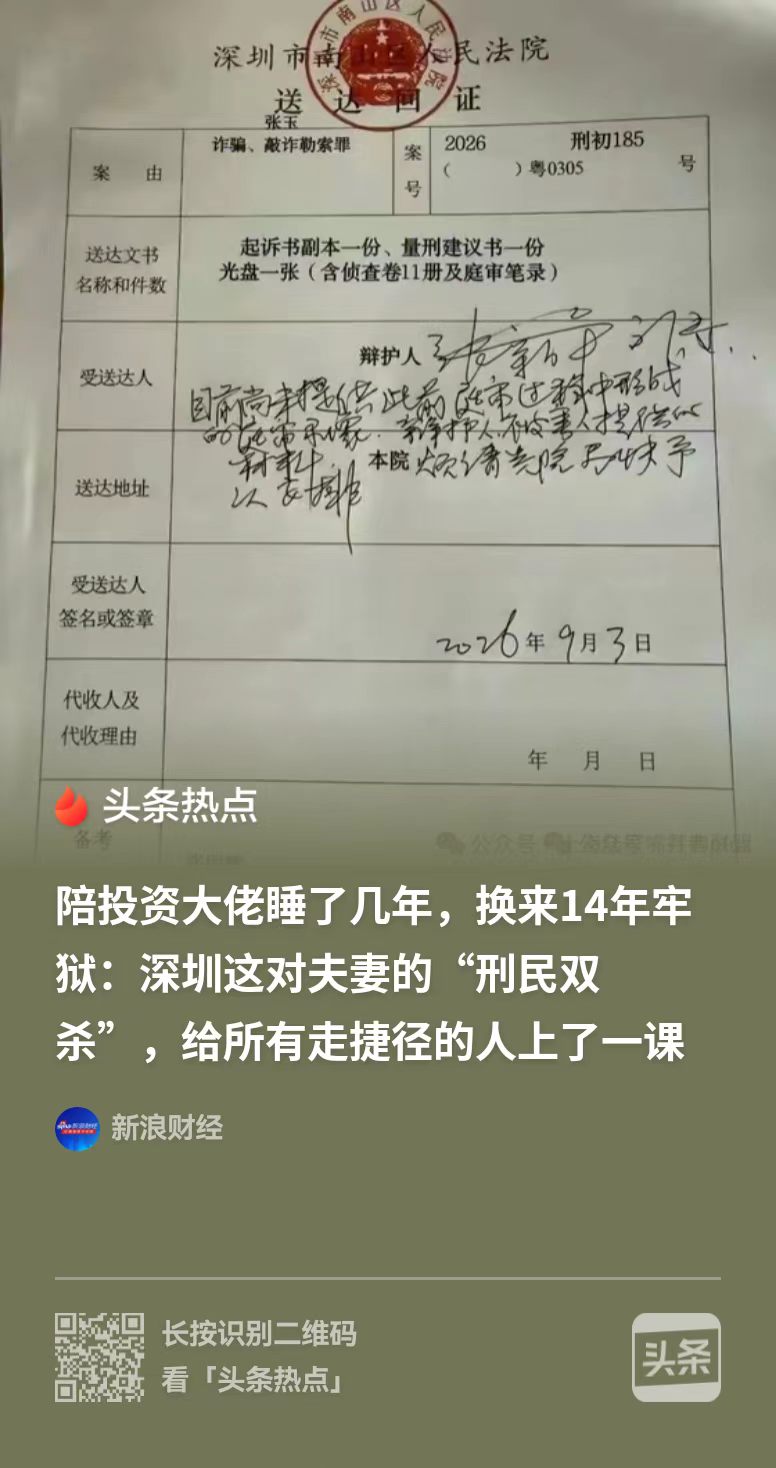 深圳市南山区人民法院
送达回证
案由
张玉
诈骗、敲诈勒索罪
案号
2026 刑初185
( )粤0305 号
送达文书
名称和件数
起诉书副本一份、量刑建议书一份
光盘一张（含侦查卷11册及庭审笔录）
受送达人
辩护人
目前尚未提供此前庭审过程中形成
送达地址
本院
受送达人
签名或签章
2026年9月3日
代收人及
代收理由
年 月 日
备考
头条热点
公众号
陪投资大佬睡了几年，换来14年牢
狱：深圳这对夫妻的“刑民双
杀”，给所有走捷径的人上了一课
新浪财经
长按识别二维码
看「头条热点」
头条